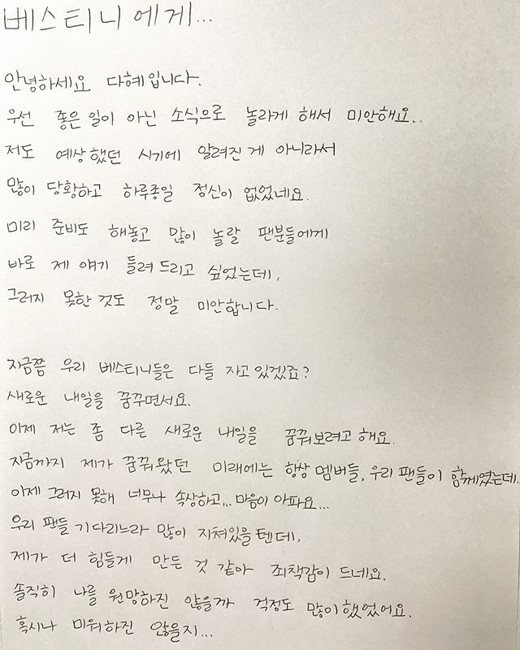 베스티니에게...
안녕하세요 다혜입니다.
우선 좋은 일이 아닌 소식으로 놀라게 해서 미안해요..
저도 예상했던 시기에 알려진 게 아니라서
많이 당황하고 하루종일 정신이 없었네요.
미리 준비도 해놓고 많이 놀랄 팬분들에게
바로 제 얘기 들려 드리고 싶었는데,
그러지 못한 것도 정말 미안합니다.
지금쯤 우리 베스티니들은 다들 자고 있겠죠?
새로운 내일을 꿈꾸면서요.
이제 저는 좀 다른 새로운 내일을 꿈꿔보려고 해요.
지금까지 제가 꿈꿔왔던 미래에는 항상 멤버들, 우리 팬들이 함께였는데..
이제 그러지 못해 너무나 속상하고... 마음이 아파요...
우리 팬들 기다리느라 많이 지쳐있을텐데,
제가 더 힘들게 만든 것 같아 죄책감이 드네요.
솔직히 나를 원망하진 않을까 걱정도 많이 했었어요.
혹시나 미워하진 않을지...